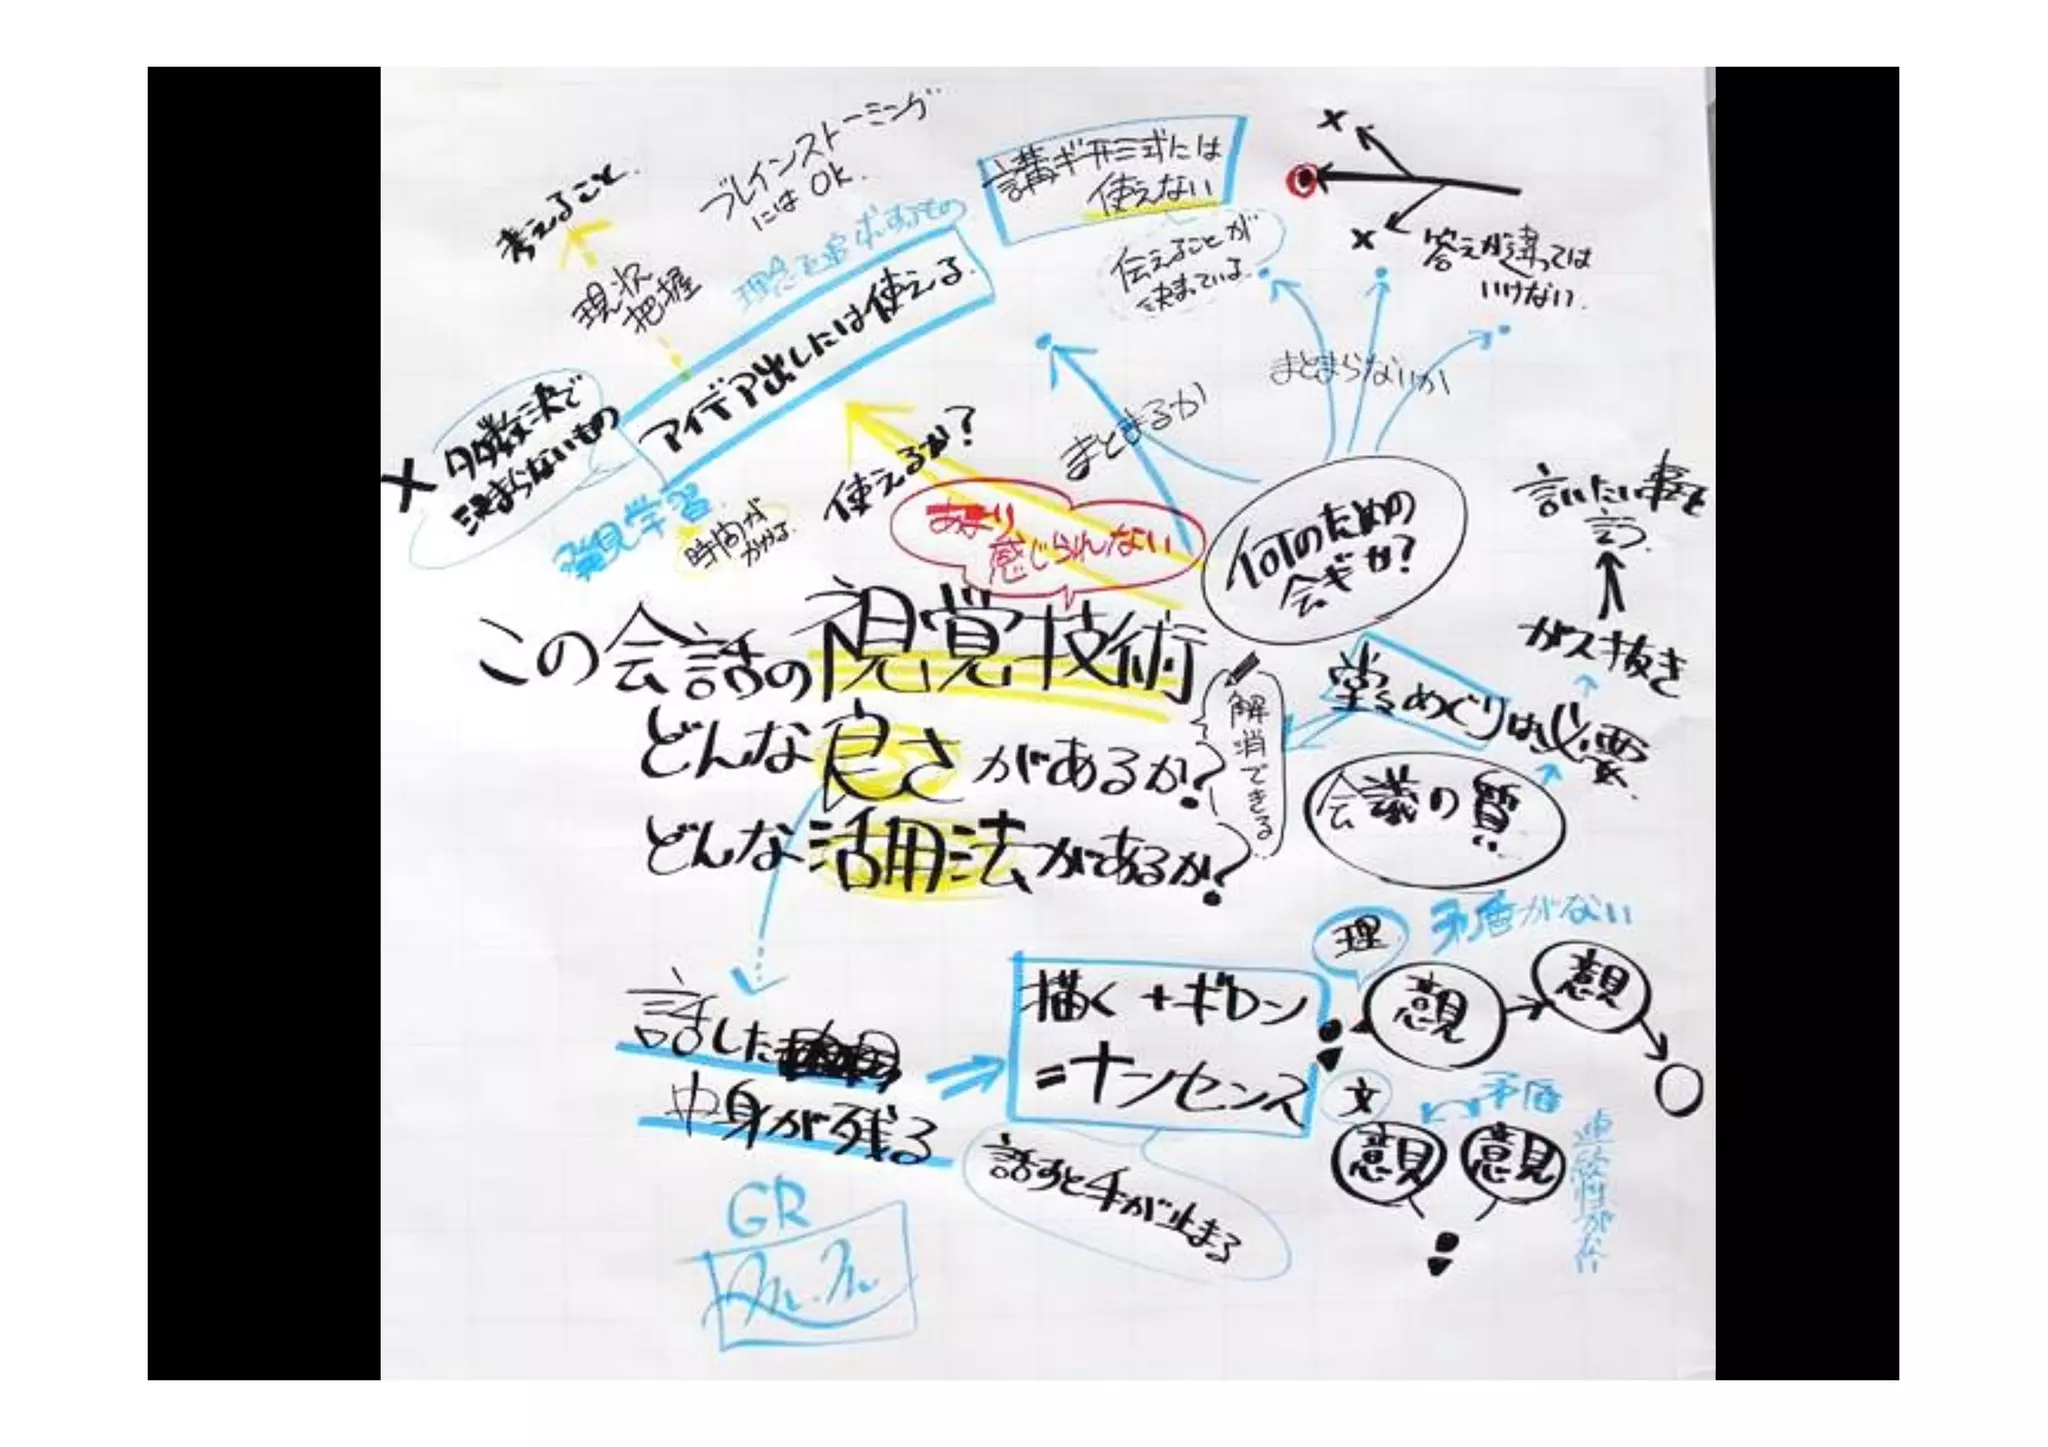 考えること.
ブレインストーミング
にはOk.
現状
把握
講ギ形式には
使えない
伝えることが
決まっている.
x
x
答えが違っては
いけない.
アイデア出しには使える.
x 多数決で
決まらないもの
発見学習.
時間が
かかる.
使えるか?
まとまるか
まとまらないか
あまり
感じられんない
何のための
会ギか?
言いたい事を
言う.
ガス抜き
堂々めぐりは必要.
会議の質
この会話の視覚技術
どんな良さがあるか?
どんな活用法があるか?
解消できる
話した
中身が残る
描く+ギロン
=ナンセンス
話すと手が止まる
理
矛盾がない
意見
意見
文
矛盾
意見
意見
連続性がない
GR